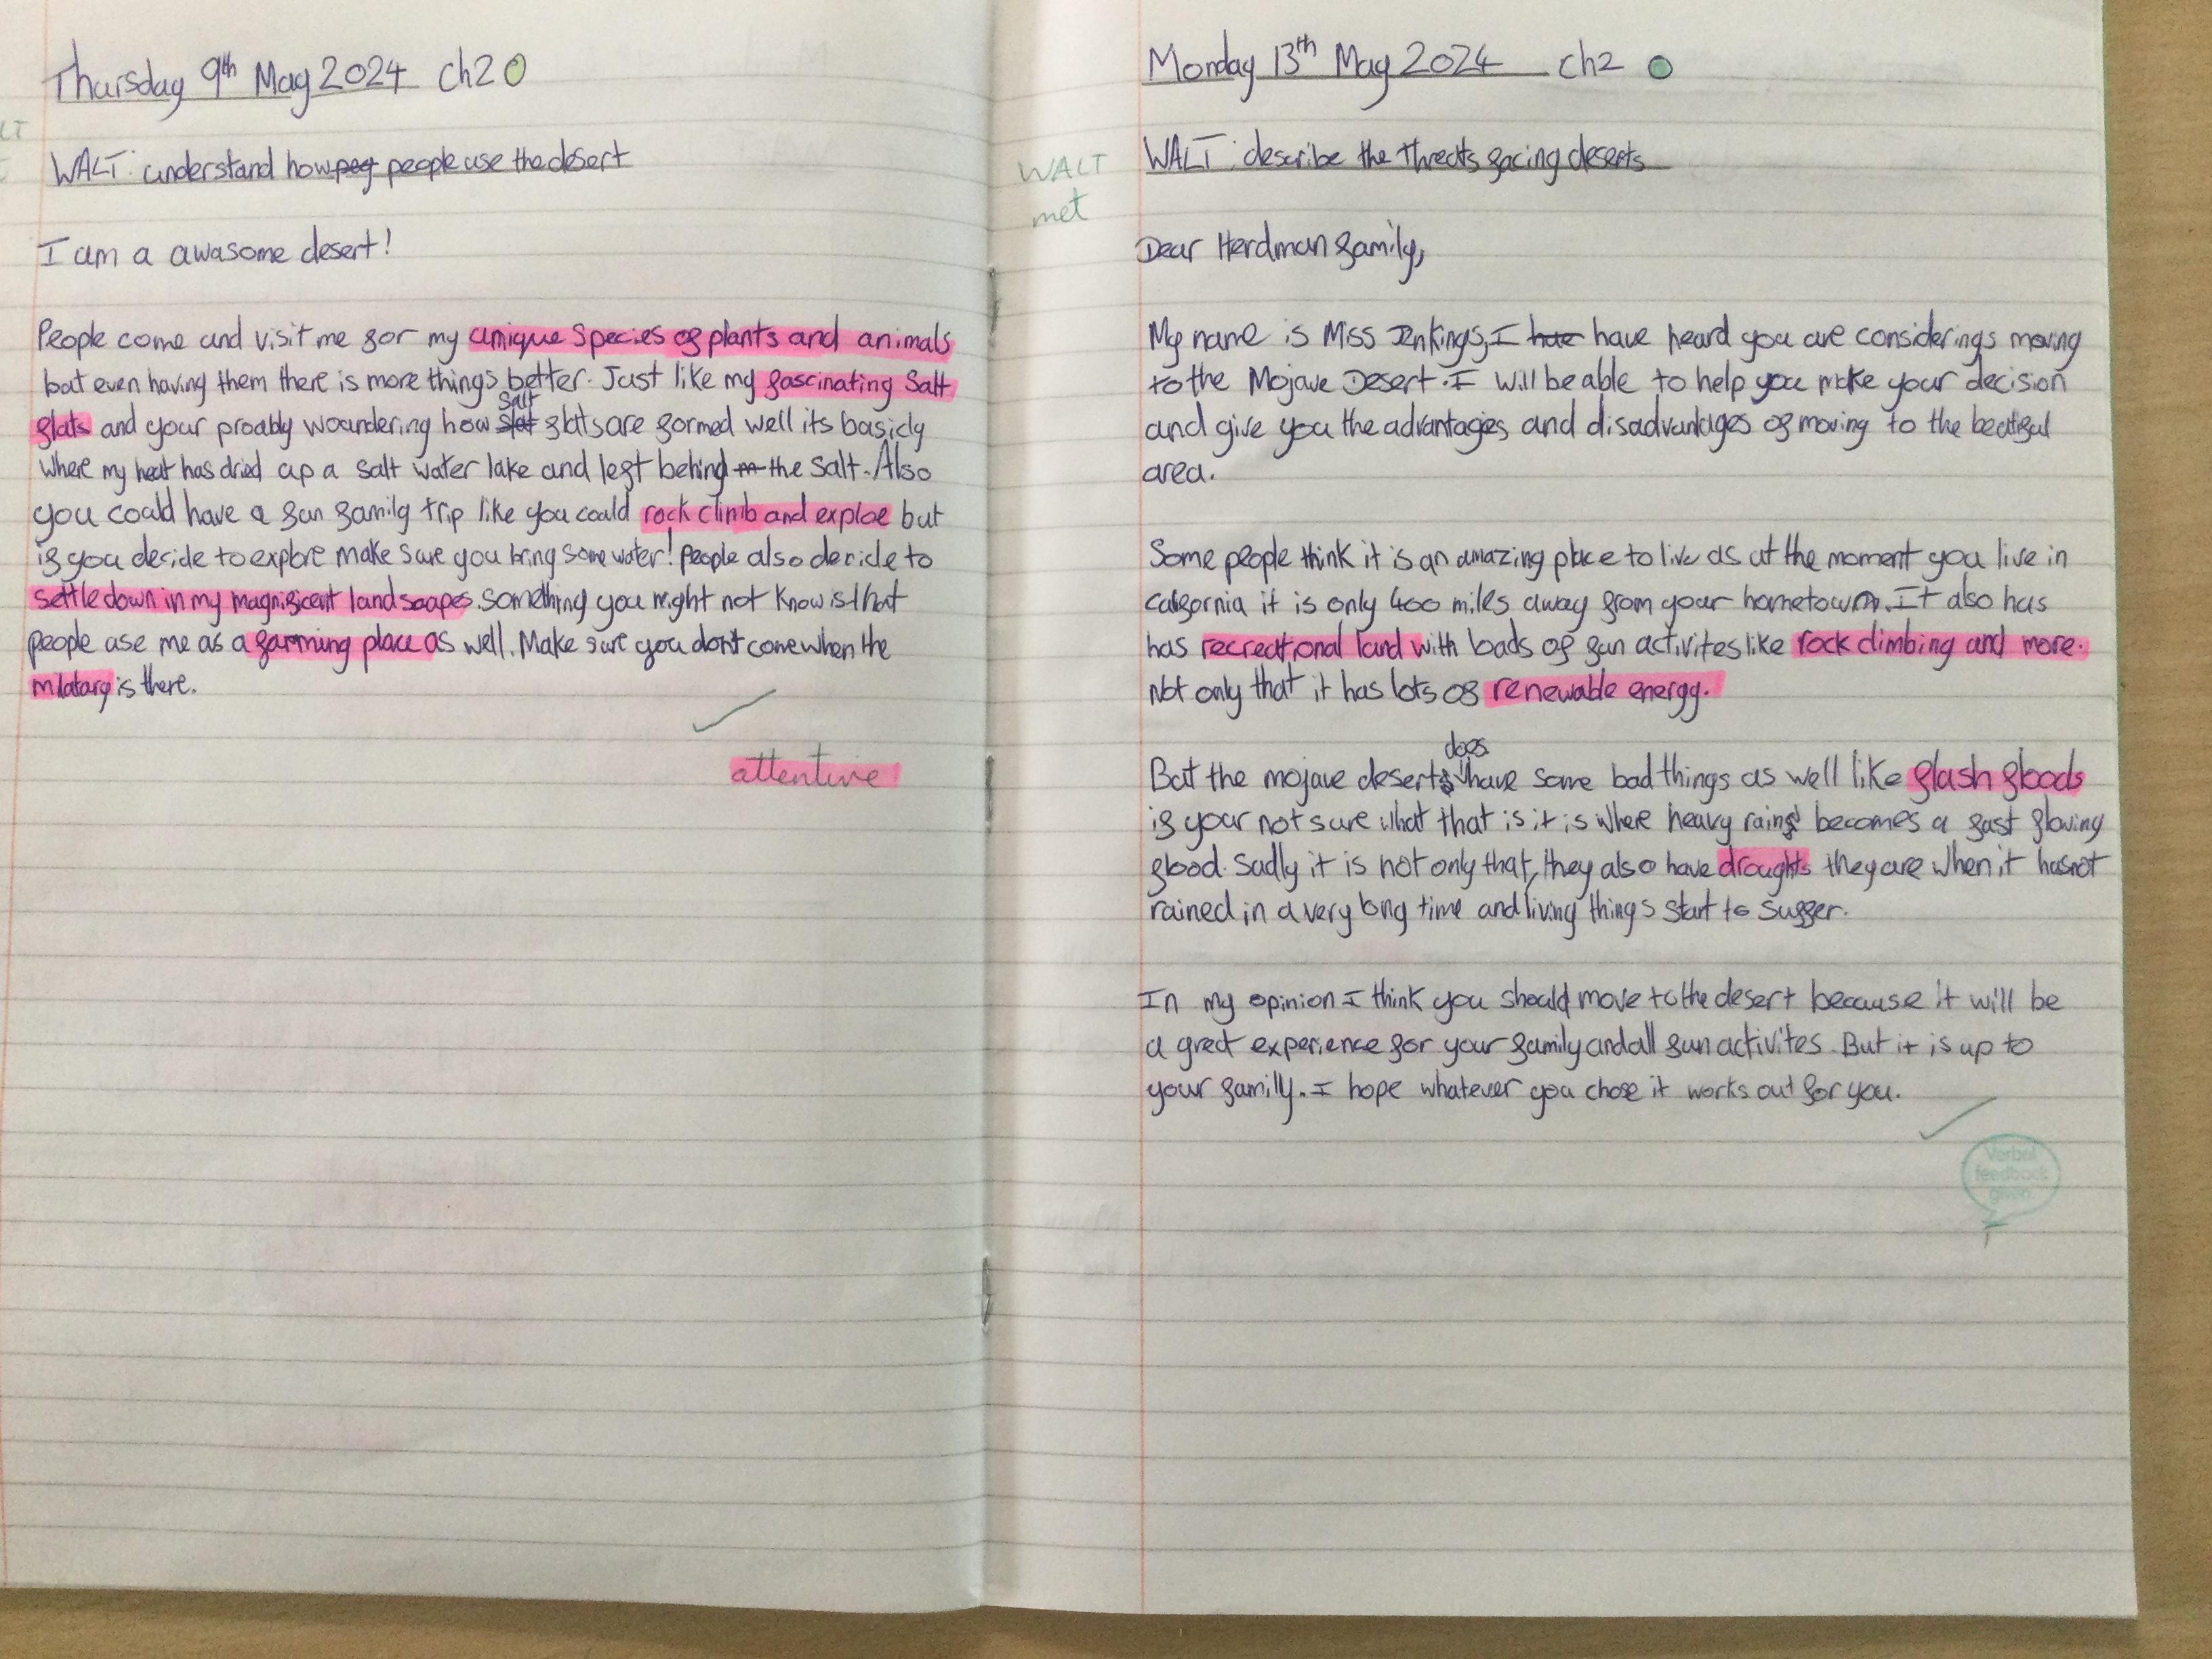 Thursday 9th May 2024 Ch2
LT
WALT: understand how peg people use the desert
I am a awasome desert!
People come and visit me for my unique species of plants and animals
but even having them there is more things better. Just like my fascinating Salt
flats and your proably woundering how slat salt flats are formed well its basicly
where my heat has dried up a salt water lake and left behind m the salt. Also
you could have a fun family trip like you could rock climb and exploe but
if you decide to explore make sure you bring some water! People also decide to
settle down in my magnificent landscapes. Something you might not know is that
people use me as a farming place as well. Make sure you dont come when the
milatary is there.
attentive
Monday 13th May 2024 Ch2
WALT
met
WALT: describe the threats facing deserts
Dear Herdman family,
My name is Miss Jenkings, I hate have heard you are considerings moving
to the Mojave Desert. I will be able to help you make your decision
and give you the advantages and disadvantages of moving to the beatiful
area.
Some people think it is an amazing place to live as at the moment you live in
California it is only 400 miles away from your hometown. It also has
has recreational land with loads of fun activites like rock climbing and more.
Not only that it has lots of renewable energy.
But the mojave deserts does have some bad things as well like flash floods
if your not sure what that is it is where heavy rains becomes a fast flowing
flood. Sadly it is not only that, they also have droughts they are when it has not
rained in a very long time and living things start to suffer.
In my opinion I think you should move to the desert because it will be
a great experience for your family and all fun activites. But it is up to
your family. I hope whatever you chose it works out for you.
Verbal
feedback
given